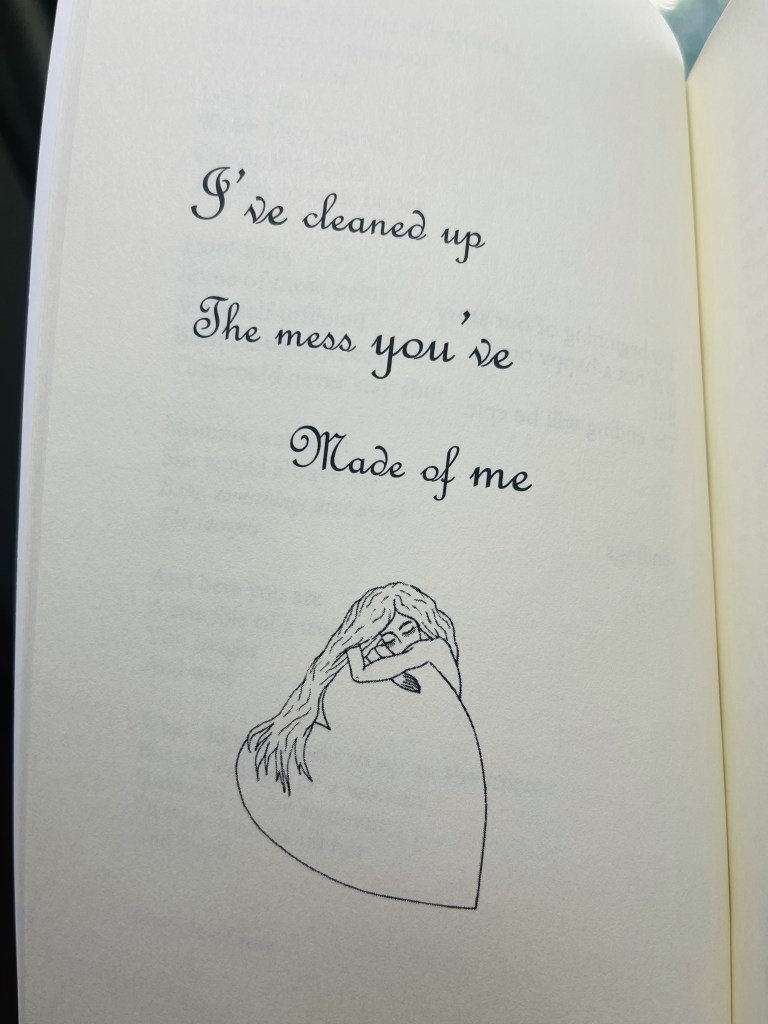 I've cleaned up
The mess you've
Made of me